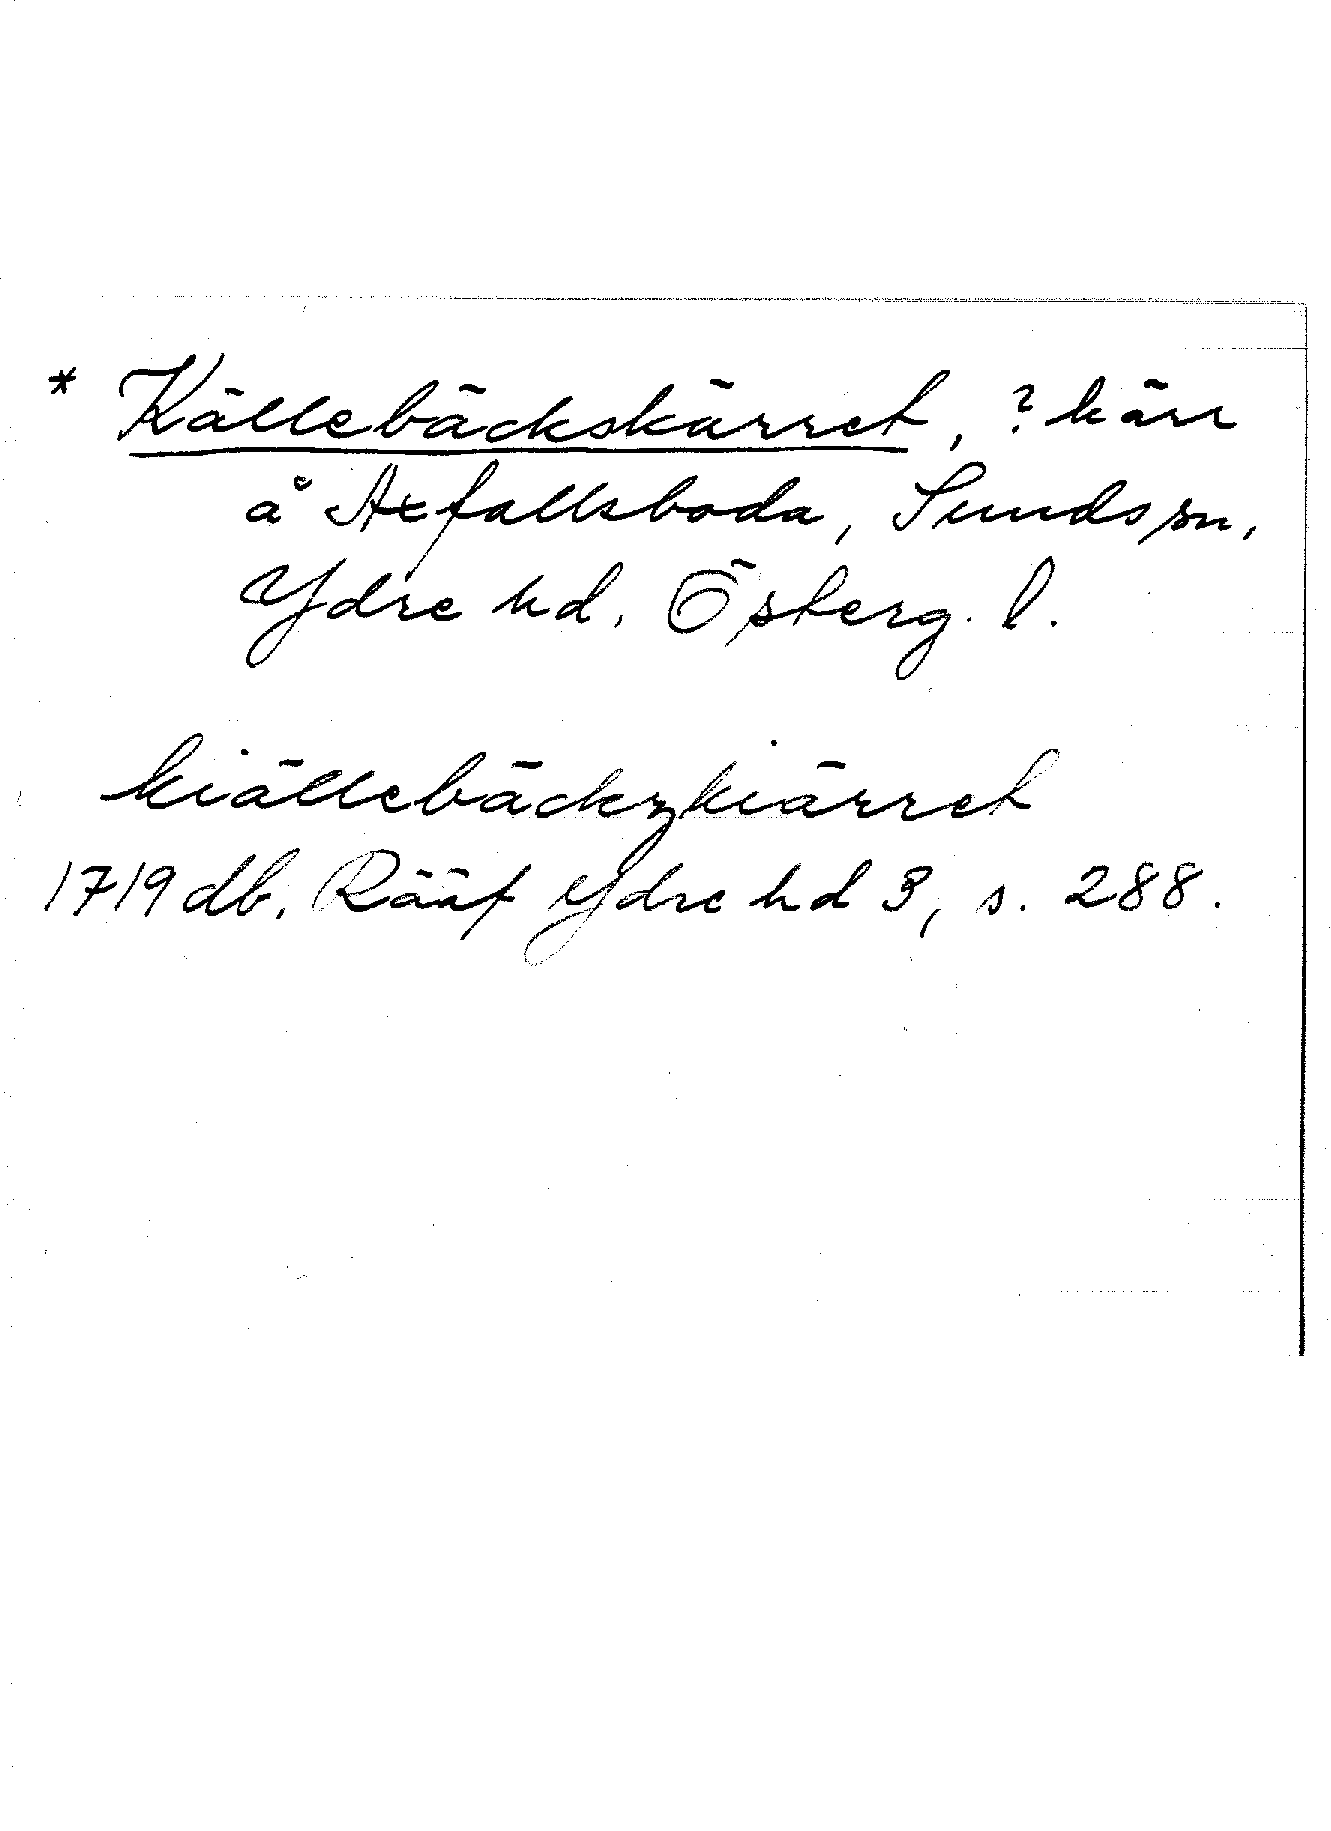 * Källebäckskärret, ? kärr
å Axfallsboda, Sunds sn,
Ydre hd. Österg. l.
kiällebäckzkiärret
1719 db. Rääf Ydre hd 3, s. 288.